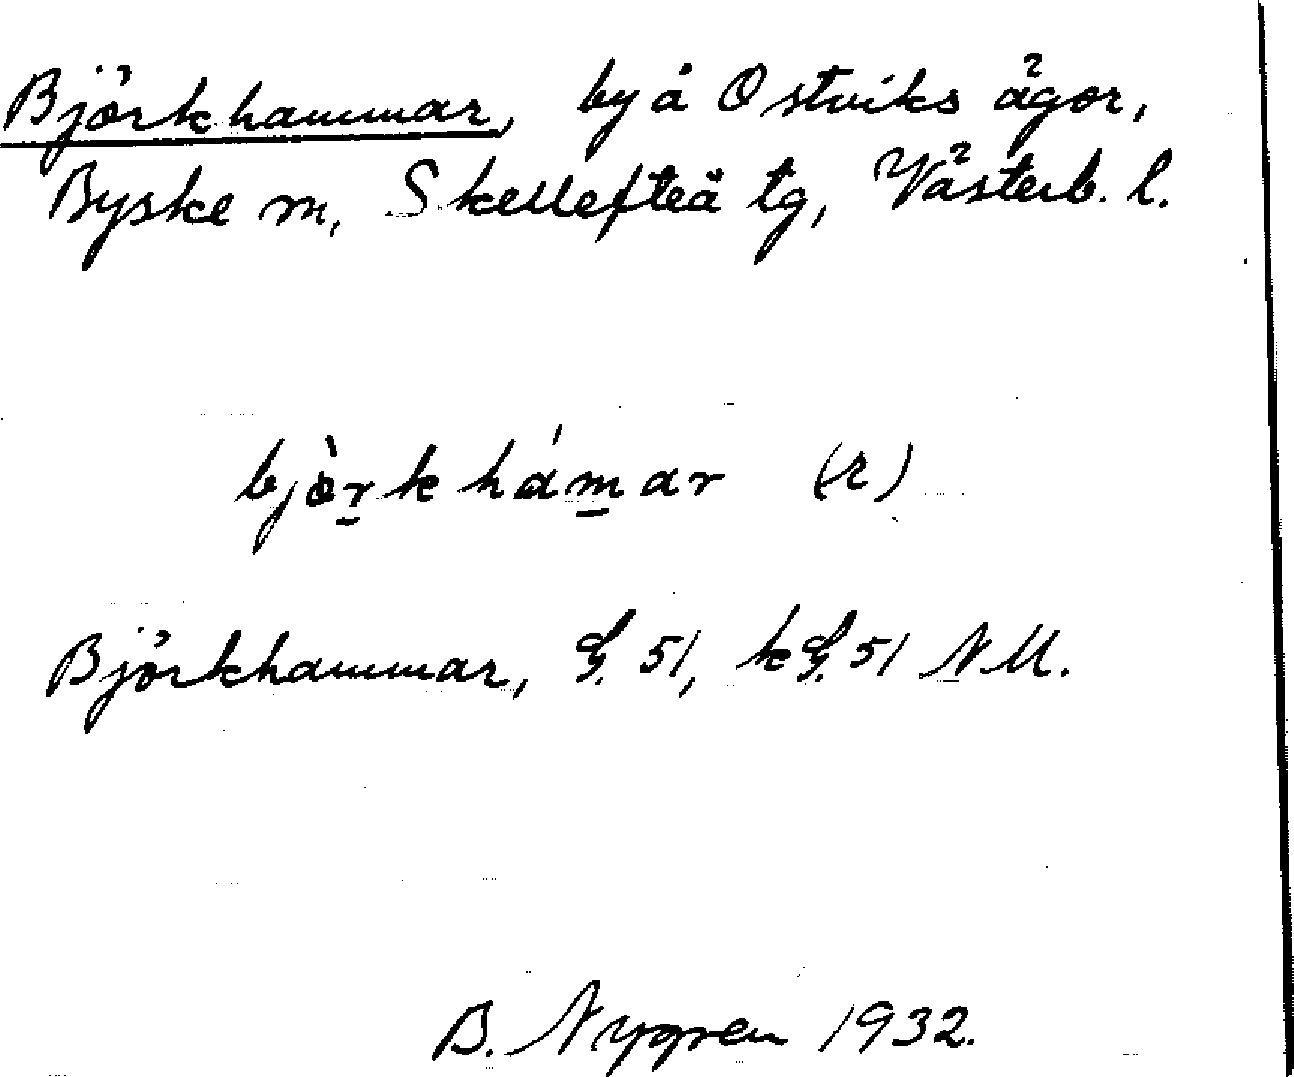 Björkhammar, by å Ostviks ägor,
Byske sn, Skellefteå tg, Västerb. l.
bjòr̲khám̲ar (r)
Björkhammar, G. 51, kG. 51 NM.
B. Nygren 1932.